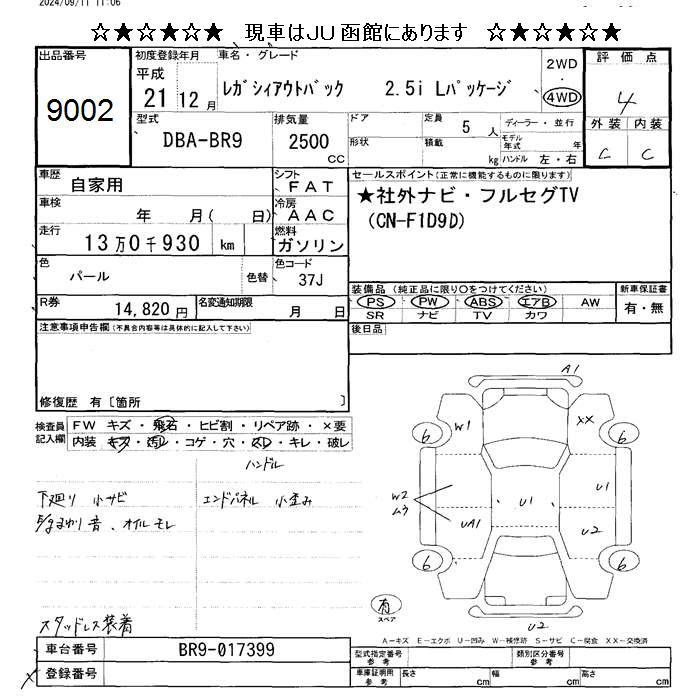 2024/09/11 11:06
☆★☆★☆★ 現車はJU函館にあります ☆★☆★☆★
出品番号
9002
初度登録年月
平成
21 12 月
車名・グレード
レガシィアウトバック 2.5i Lパッケージ
2WD
・
4WD
評価点
4
型式
DBA-BR9
排気量
2500
CC
ドア
定員
5 人
ディーラー・並行
形状
積載
kg
モデル年式 年
ハンドル 左・右
外装 内装
C C
車歴
自家用
シフト
FAT
車検
年 月( 日)
冷房
AAC
走行
13万0千930 km
燃料
ガソリン
色
パール
色替
色コード
37J
R券
14,820円
名変通知期限
月 日
セールスポイント(正常に機能するものに限ります)
★社外ナビ・フルセグTV
(CN-F1D9D)
装備品(純正品に限り○をつけてください)
PS PW ABS エアB AW
SR ナビ TV カワ
新車保証書
有・無
後日品
注意事項申告欄(不具合内容等は具体的に記入して下さい)
修復歴 有〔箇所 〕
検査員記入欄
FW キズ・飛石・ヒビ割・リペア跡・×要
内装 キズ・汚れ・コゲ・穴・スレ・キレ・破レ
ハンドル
下廻り 小サビ
エンドパネル 小歪み
音、オイルモレ
スタッドレス装着
A1
W1
XX
6
6
W2
ムラ
U1
U1
UA1
U2
6
6
有
スペア
U2
A－キズ E－エクボ U－凹み W－補修跡 S－サビ C－腐食 XX－交換済
車台番号
BR9-017399
登録番号
型式指定番号
参考
類別区分番号
参考
車庫証明用
参考
長さ cm
幅 cm
高さ cm